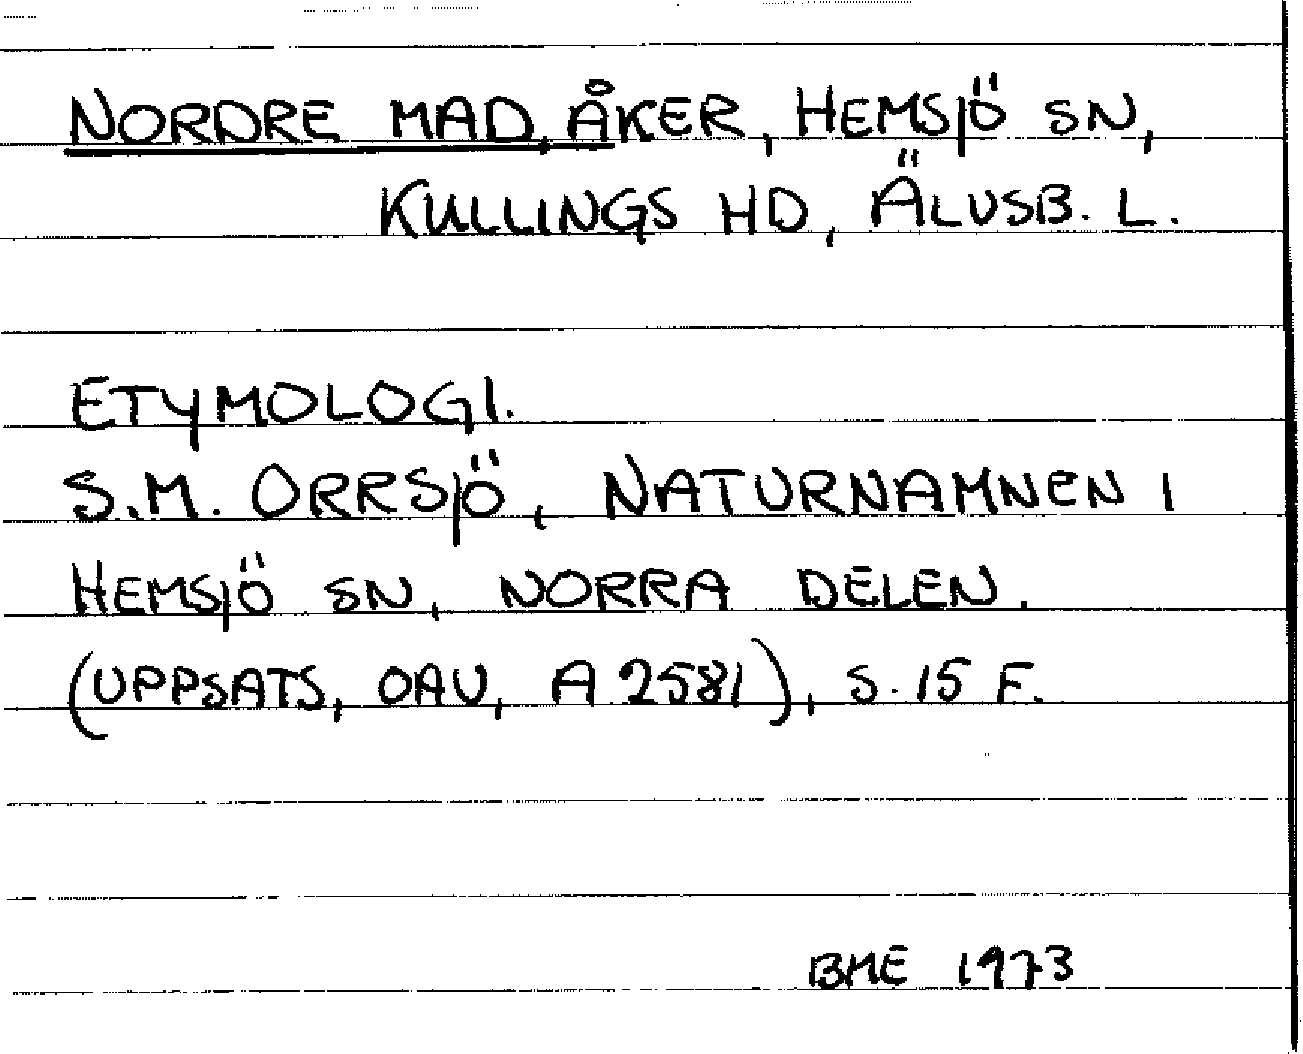 NORDRE MAD, ÅKER, HEMSJÖ SN,
KULLINGS HD, ÄLVSB. L.
ETYMOLOGI.
S.M. ORRSJÖ, NATURNAMNEN I
HEMSJÖ SN, NORRA DELEN.
(UPPSATS, OAU, A 2581), S. 15 F.
BME 1973